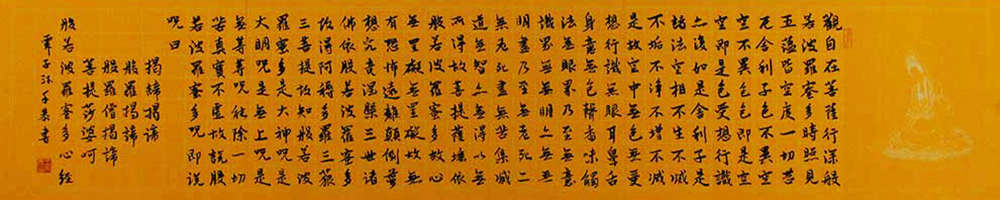 觀自在菩薩行深般
若波羅蜜多時照見
五蘊皆空度一切苦
厄舍利子色不異空
空不異色色即是空
空即是色受想行識
亦復如是舍利子是
諸法空相不生不滅
不垢不淨不增不減
是故空中無色無受
想行識無眼耳鼻舌
身意無色聲香味觸
法無眼界乃至無意
識界無無明亦無無
明盡乃至無老死亦
無老死盡無苦集滅
道無智亦無得以無
所得故菩提薩埵依
般若波羅蜜多故心
無罣礙無罣礙故無
有恐怖遠離顛倒夢
想究竟涅槃三世諸
佛依般若波羅蜜多
故得阿耨多羅三藐
三菩提故知般若波
羅蜜多是大神咒是
大明咒是無上咒是
無等等咒能除一切
苦真實不虛故說般
若波羅蜜多咒即說
咒曰
揭諦揭諦
般羅揭諦
般羅僧揭諦
菩提莎婆呵
般若波羅蜜多心經